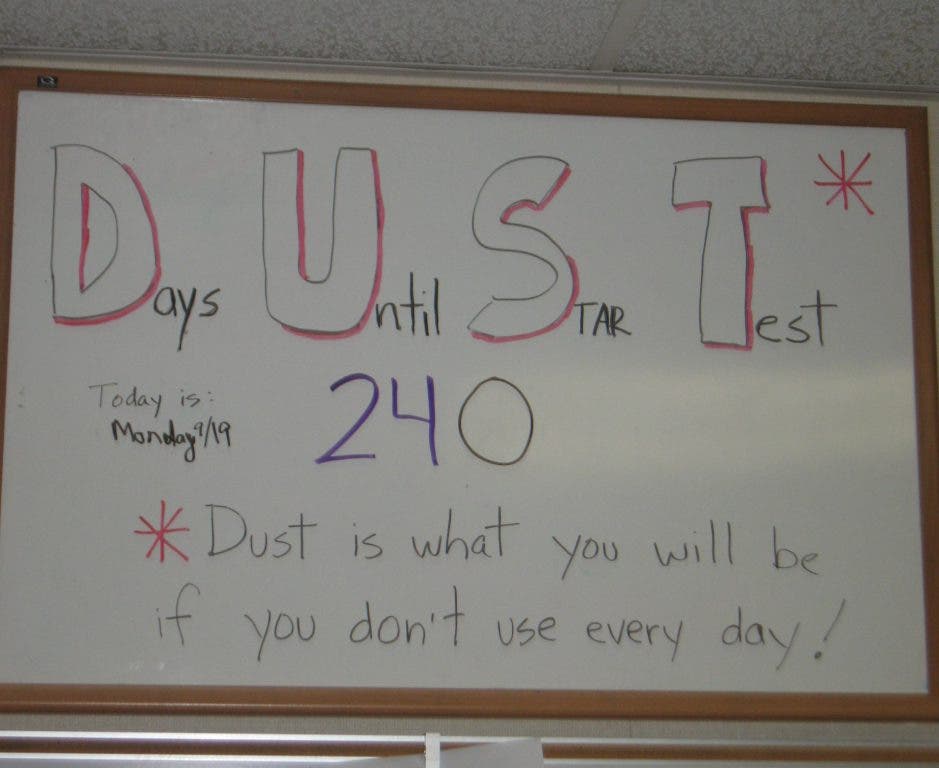 Days Until STAR Test *
Today is:
Monday 9/19
240
* Dust is what you will be
if you don't use every day!